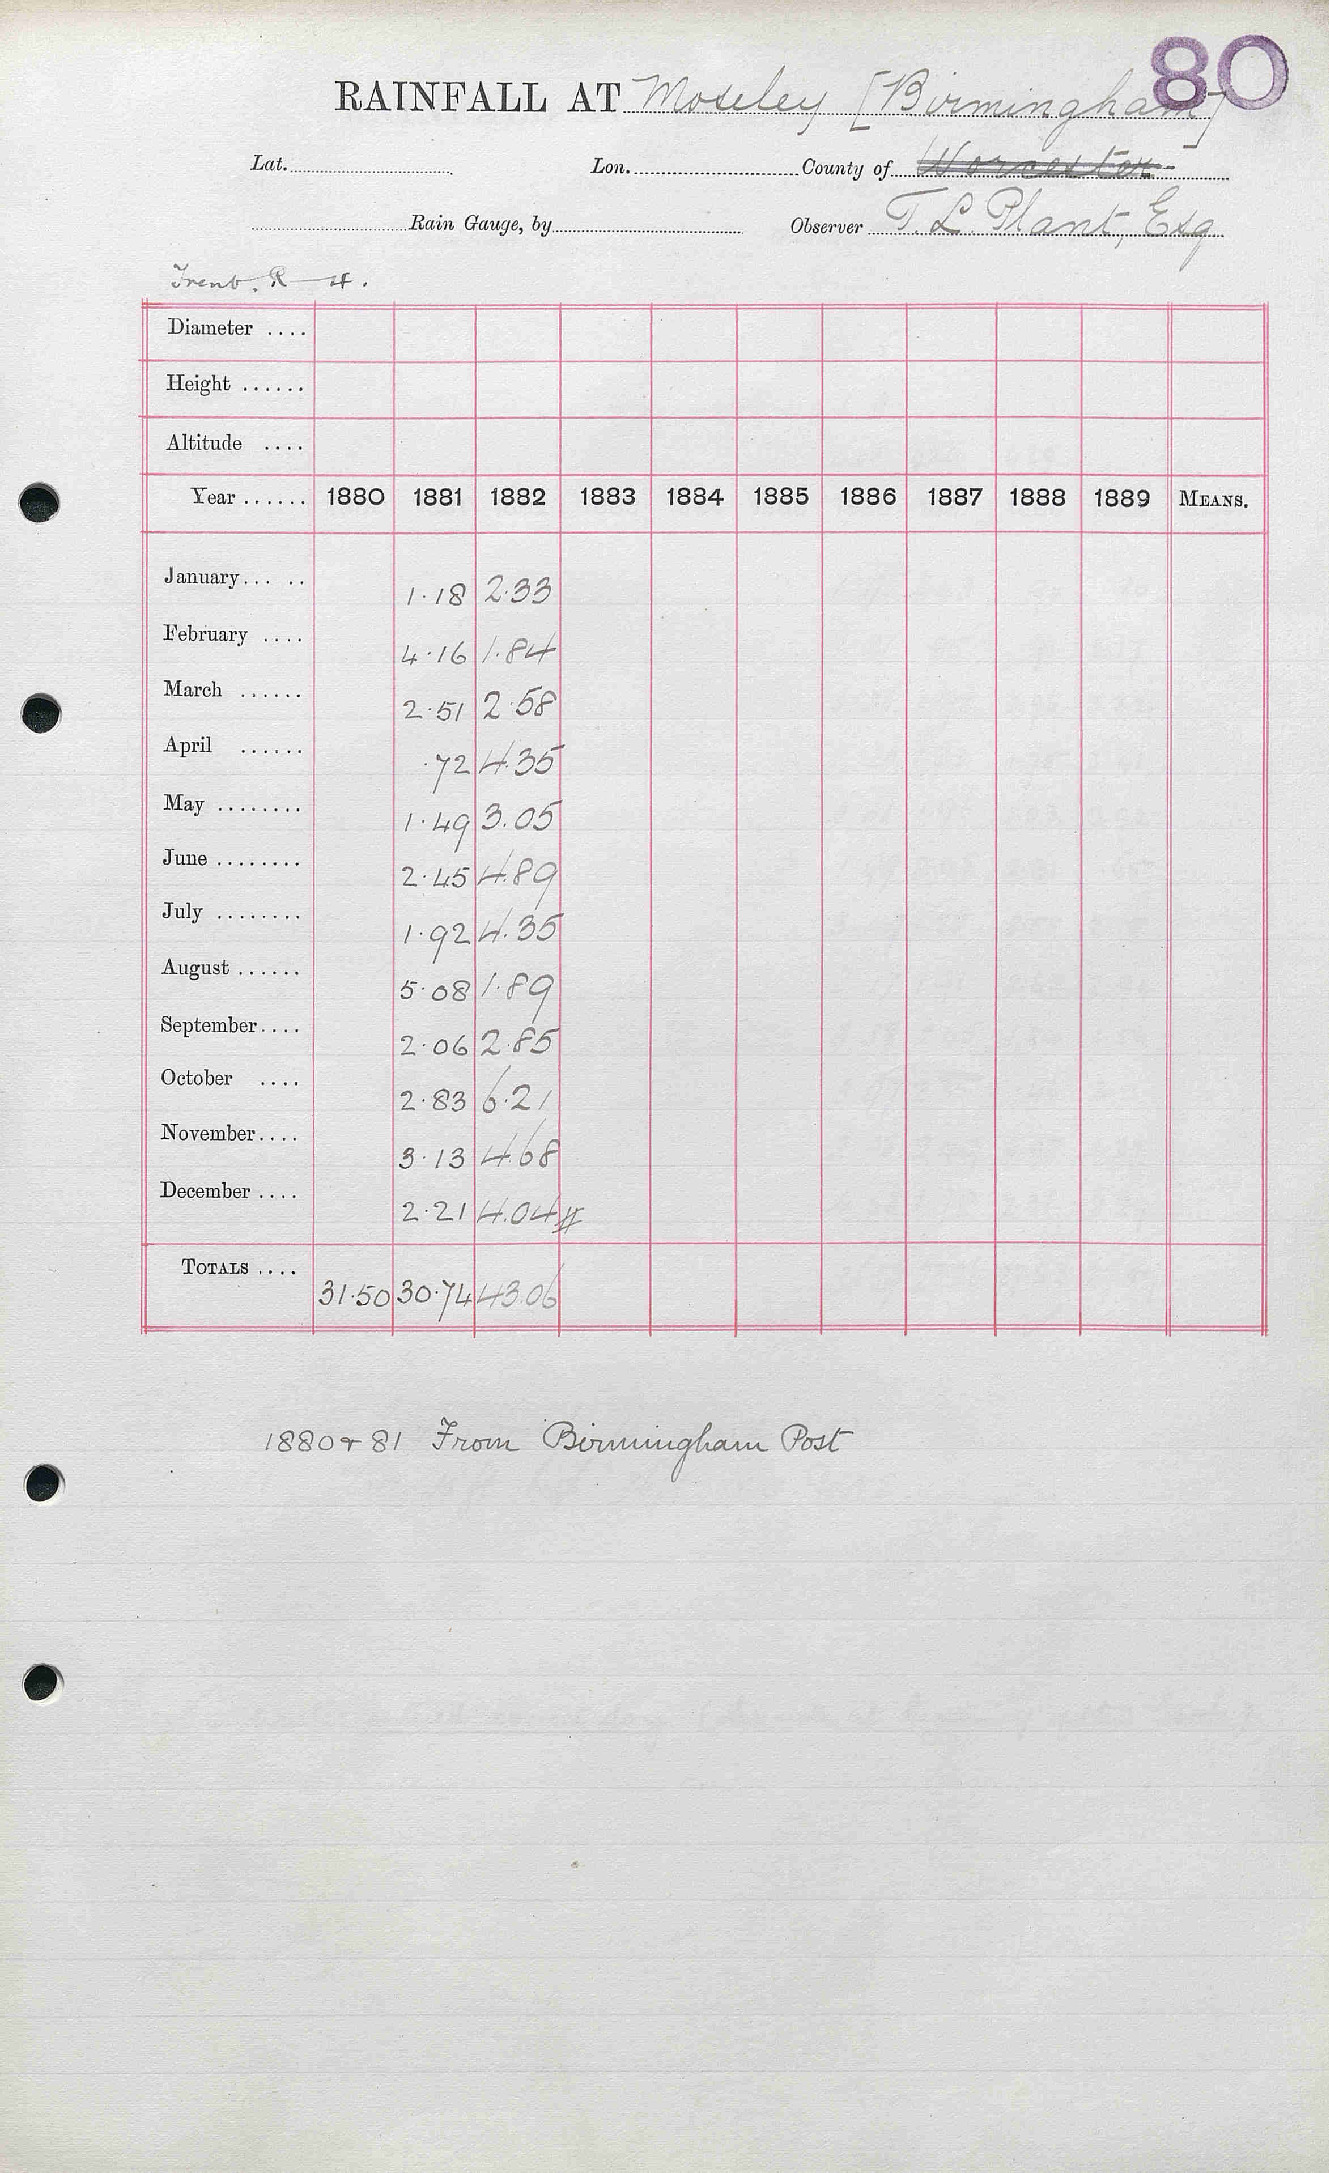 80
RAINFALL AT Moseley [Birmingham]
Lat. Lon. County of Worcester
Rain Gauge, by Observer T. L. Plant, Esq
Trent. R 4.
Diameter ....
Height ......
Altitude ....
Year ...... 1880 1881 1882 1883 1884 1885 1886 1887 1888 1889 MEANS.
January... .. 1.18 2.33
February .... 4.16 1.84
March ...... 2.51 2.58
April ...... .72 4.35
May ........ 1.49 3.05
June ........ 2.45 4.89
July ........ 1.92 4.35
August ...... 5.08 1.89
September.... 2.06 2.85
October .... 2.83 6.21
November.... 3.13 4.68
December .... 2.21 4.04
TOTALS .... 31.50 30.74 43.06
1880 & 81 From Birmingham Post